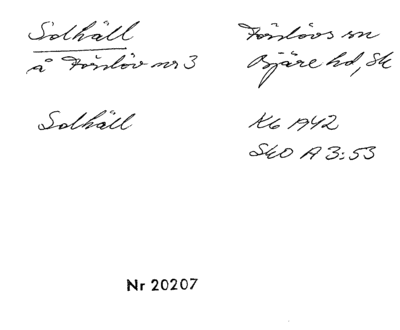 Solhäll
å Förslöv nr 3
Förslövs sn
Bjäre hd, Sk
Solhäll
K6 1942
SkO A 3:53
Nr 20207